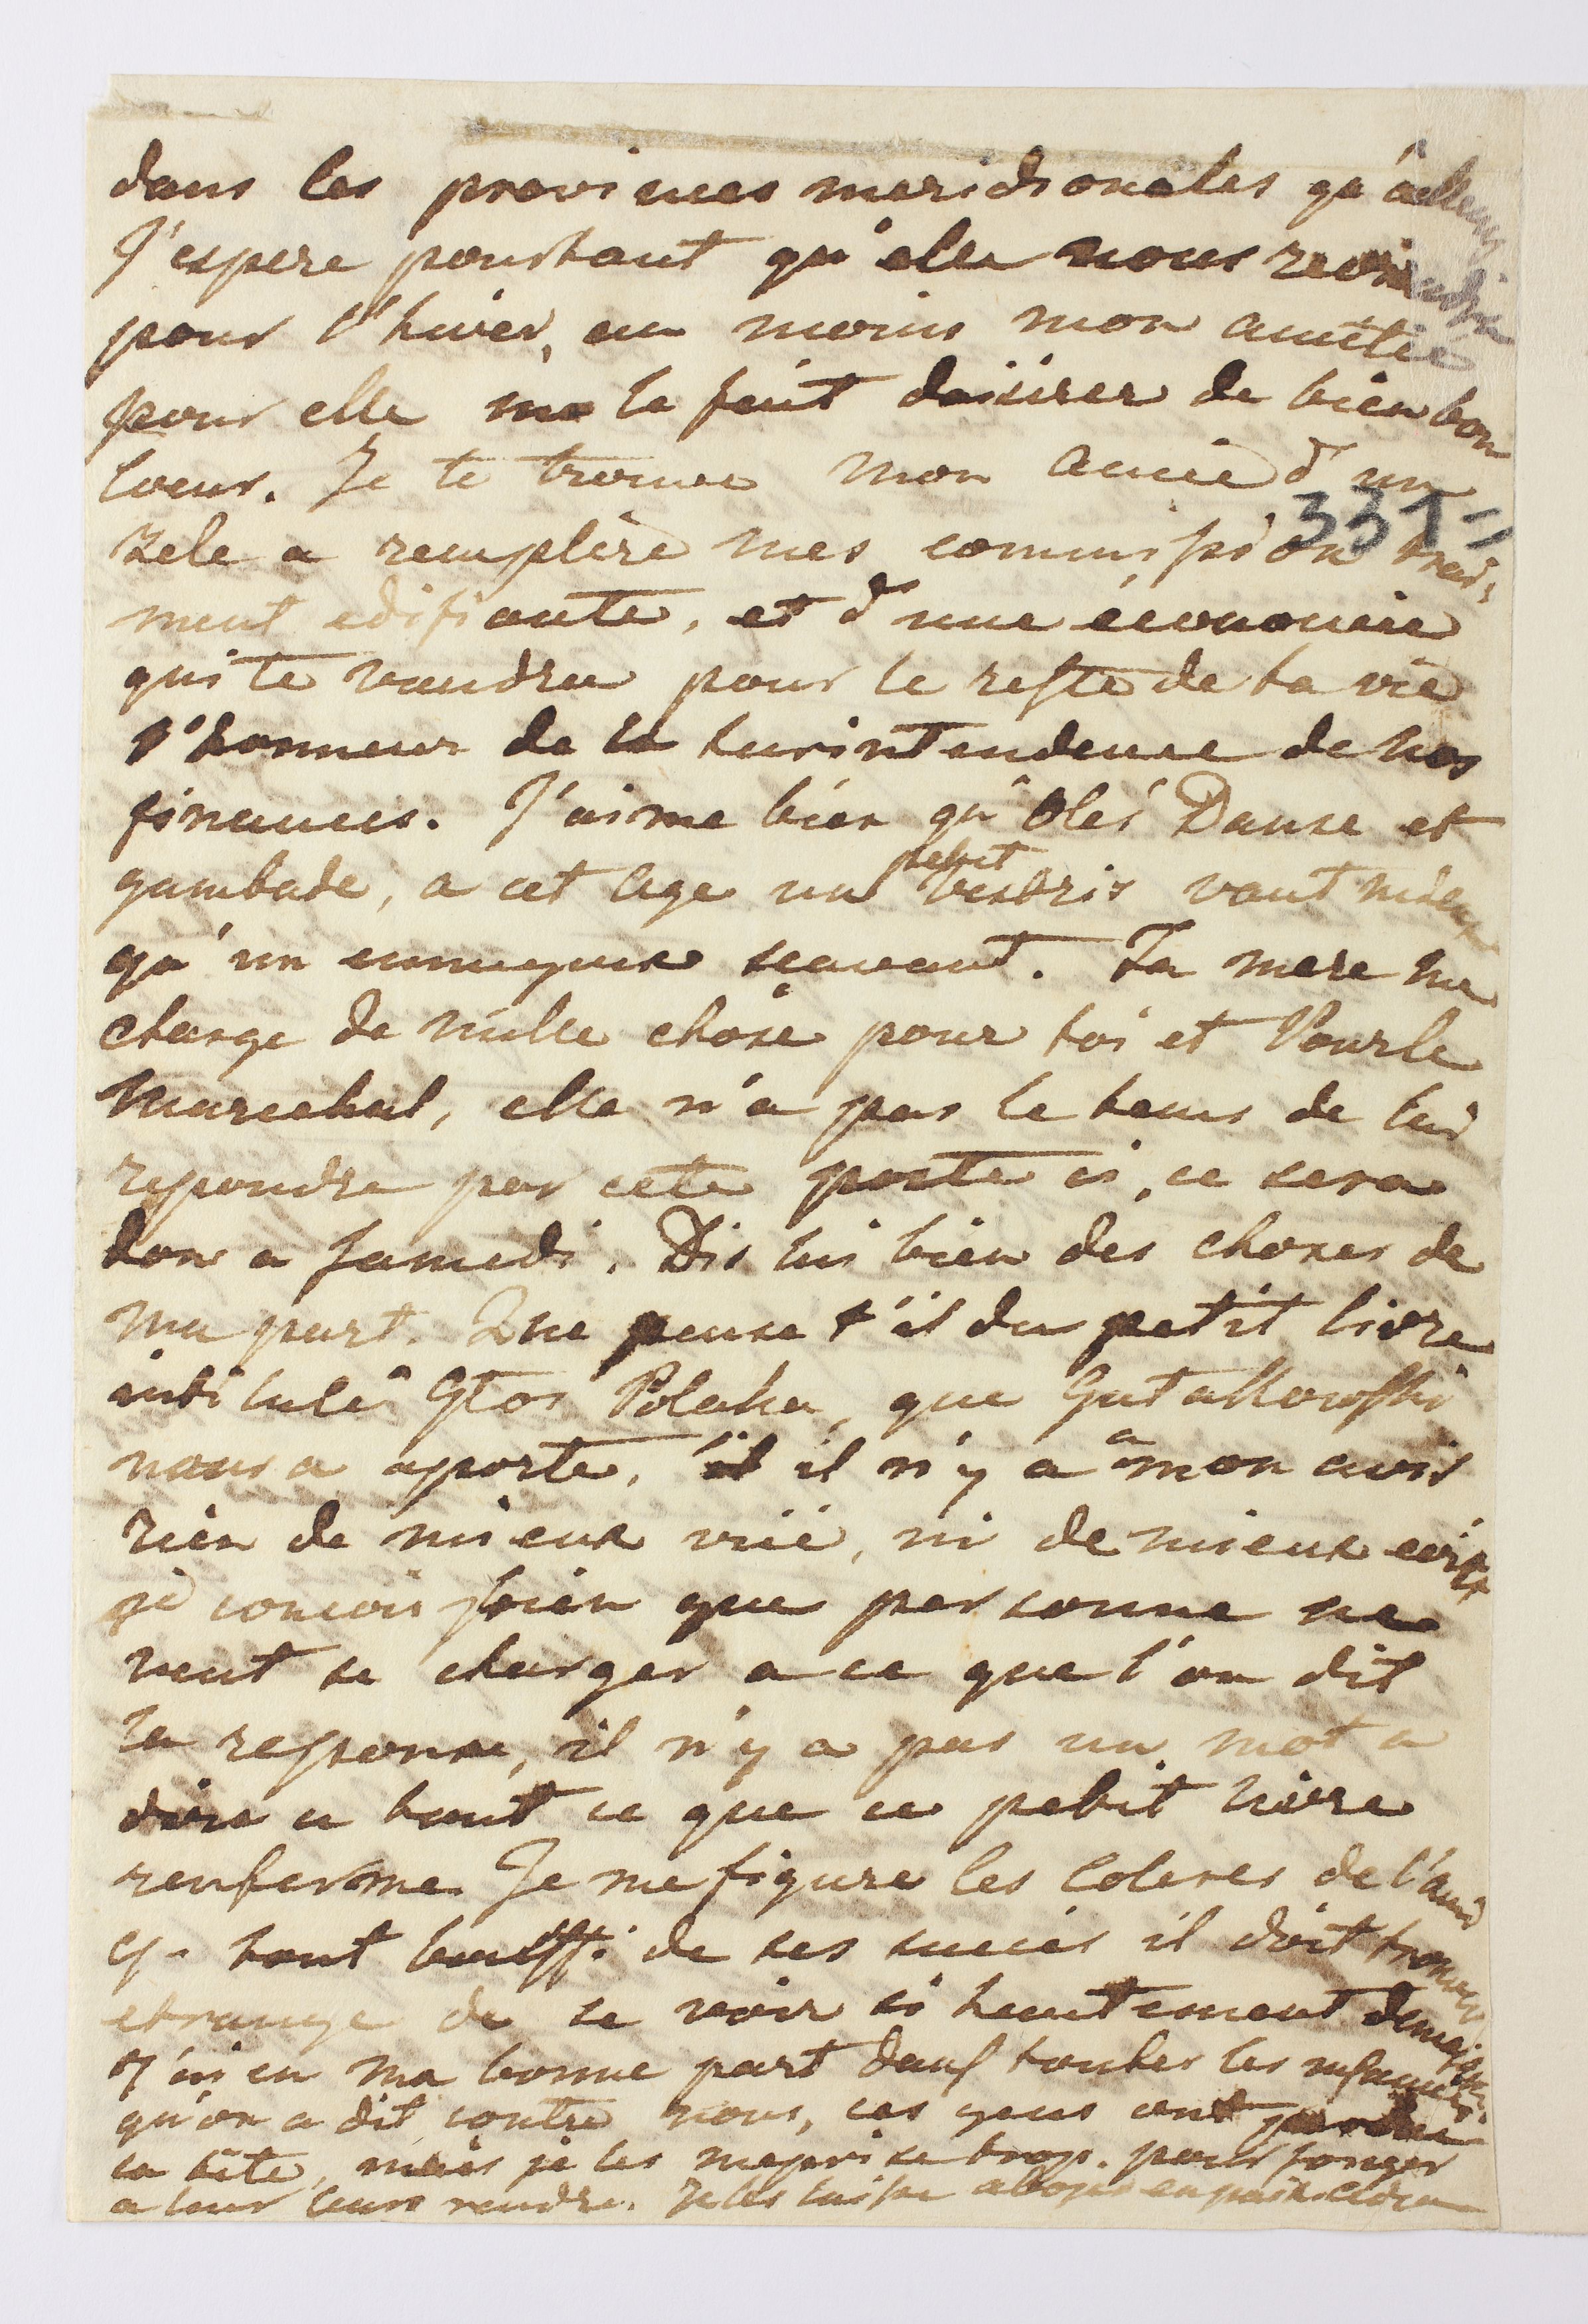 dans les provinces meridionales qu'ailleurs
J'espere pourtant qu'elle nous reviendra
pour l'hiver, au moins mon amitié
pour elle me le fait desirer de bien bon
coeur. Je te trouve mon amie d'un
331
zele a remplire mes commission vrai,
ment edifiante, et d'une économie
qui te vaudra pour le reste de ta vie
l'honneur de la surintendence de nos
finances. J'aime bien qu'Olés Danse et
gambade, a cet age un petit Vestris vaut mieux
qu'un ennuyeux sçavant. Ta mere me
charge de mille chose pour toi et Pour le
Marechal, elle n'a pas le tems de lui
repondre par cete poste ci, ce sera
don a samedi. Dis lui bien des choses de
ma part. Que pense t'il du petit livre
intitulé Głos Polaka, que Gutakowski
nous a aporte, il il n'y a a mon avis
rien de mieux vüé, ni de mieux ecrit
je concois bien que personne ne
veut se charger a ce que l'on dit
la response, il n'y a pas un mot a
dire a tout ce que ce petit livre
renferme. Je me figure les Coleres de l'ami
tout bouffi de ses succes il doit trouver
etrange de se voir si hautement
J'ai eu ma bonne part dans toutes les infamies
qu'on a dit contre nous, ces gens ont perdu
la tête, mais je les meprise trop. pour songer
a leur leurs rendre. Je les laisse aboyer en paix.